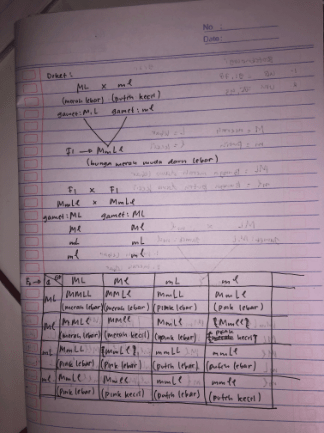 No. :
Date :
Diket :
ML x ml
(merah lebar) (putih kecil)
gamet : M,L gamet : ml
F1 → MmLl
(bunga merah muda daun lebar)
F1 x F1
MmLl x MmLl
gamet : ML gamet : ML
Ml Ml
mL mL
ml ml
F2 → ML Ml mL ml
ML MMLL MMLl MmLL MmLl
(merah lebar) (merah lebar) (pink lebar) (pink lebar)
Ml MMLl MMll MmLl {Mmll}
(merah lebar) (merah kecil) (pink lebar) kecil}
mL MmLL {MmLl} mmLL mmLl
(pink lebar) (pink lebar) (putih lebar) (putih lebar)
ml MmLl Mmll mmLl mmll
(pink lebar) (pink kecil) (putih lebar) (putih kecil)